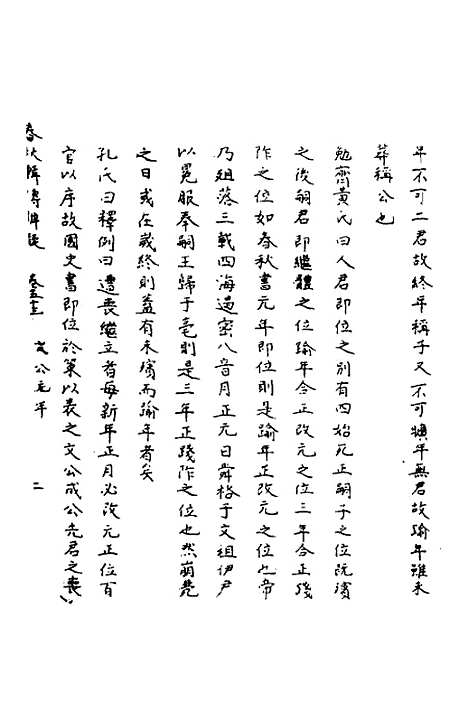 年不可二君故終年稱子又不可曠年無君故踰年雖未
葬稱公也
勉齋黃氏曰人君即位之別有四始死正嗣子之位既殯
之後嗣君即繼體之位踰年合正改元之位三年合正踐
阼之位如春秋書元年即位則是踰年正改元之位也帝
乃殂落三載四海遏密八音月正元日舜格于文祖伊尹
以冕服奉嗣王歸于亳則是三年正踐阼之位也然崩薨
之日或在歲終則蓋有未殯而踰年者矣
孔氏曰釋例曰遭喪繼立者每新年正月必改元正位百
官以序故國史書即位於策以表之文公成公先君之喪
春秋闕 卷五十三 文公元年 二